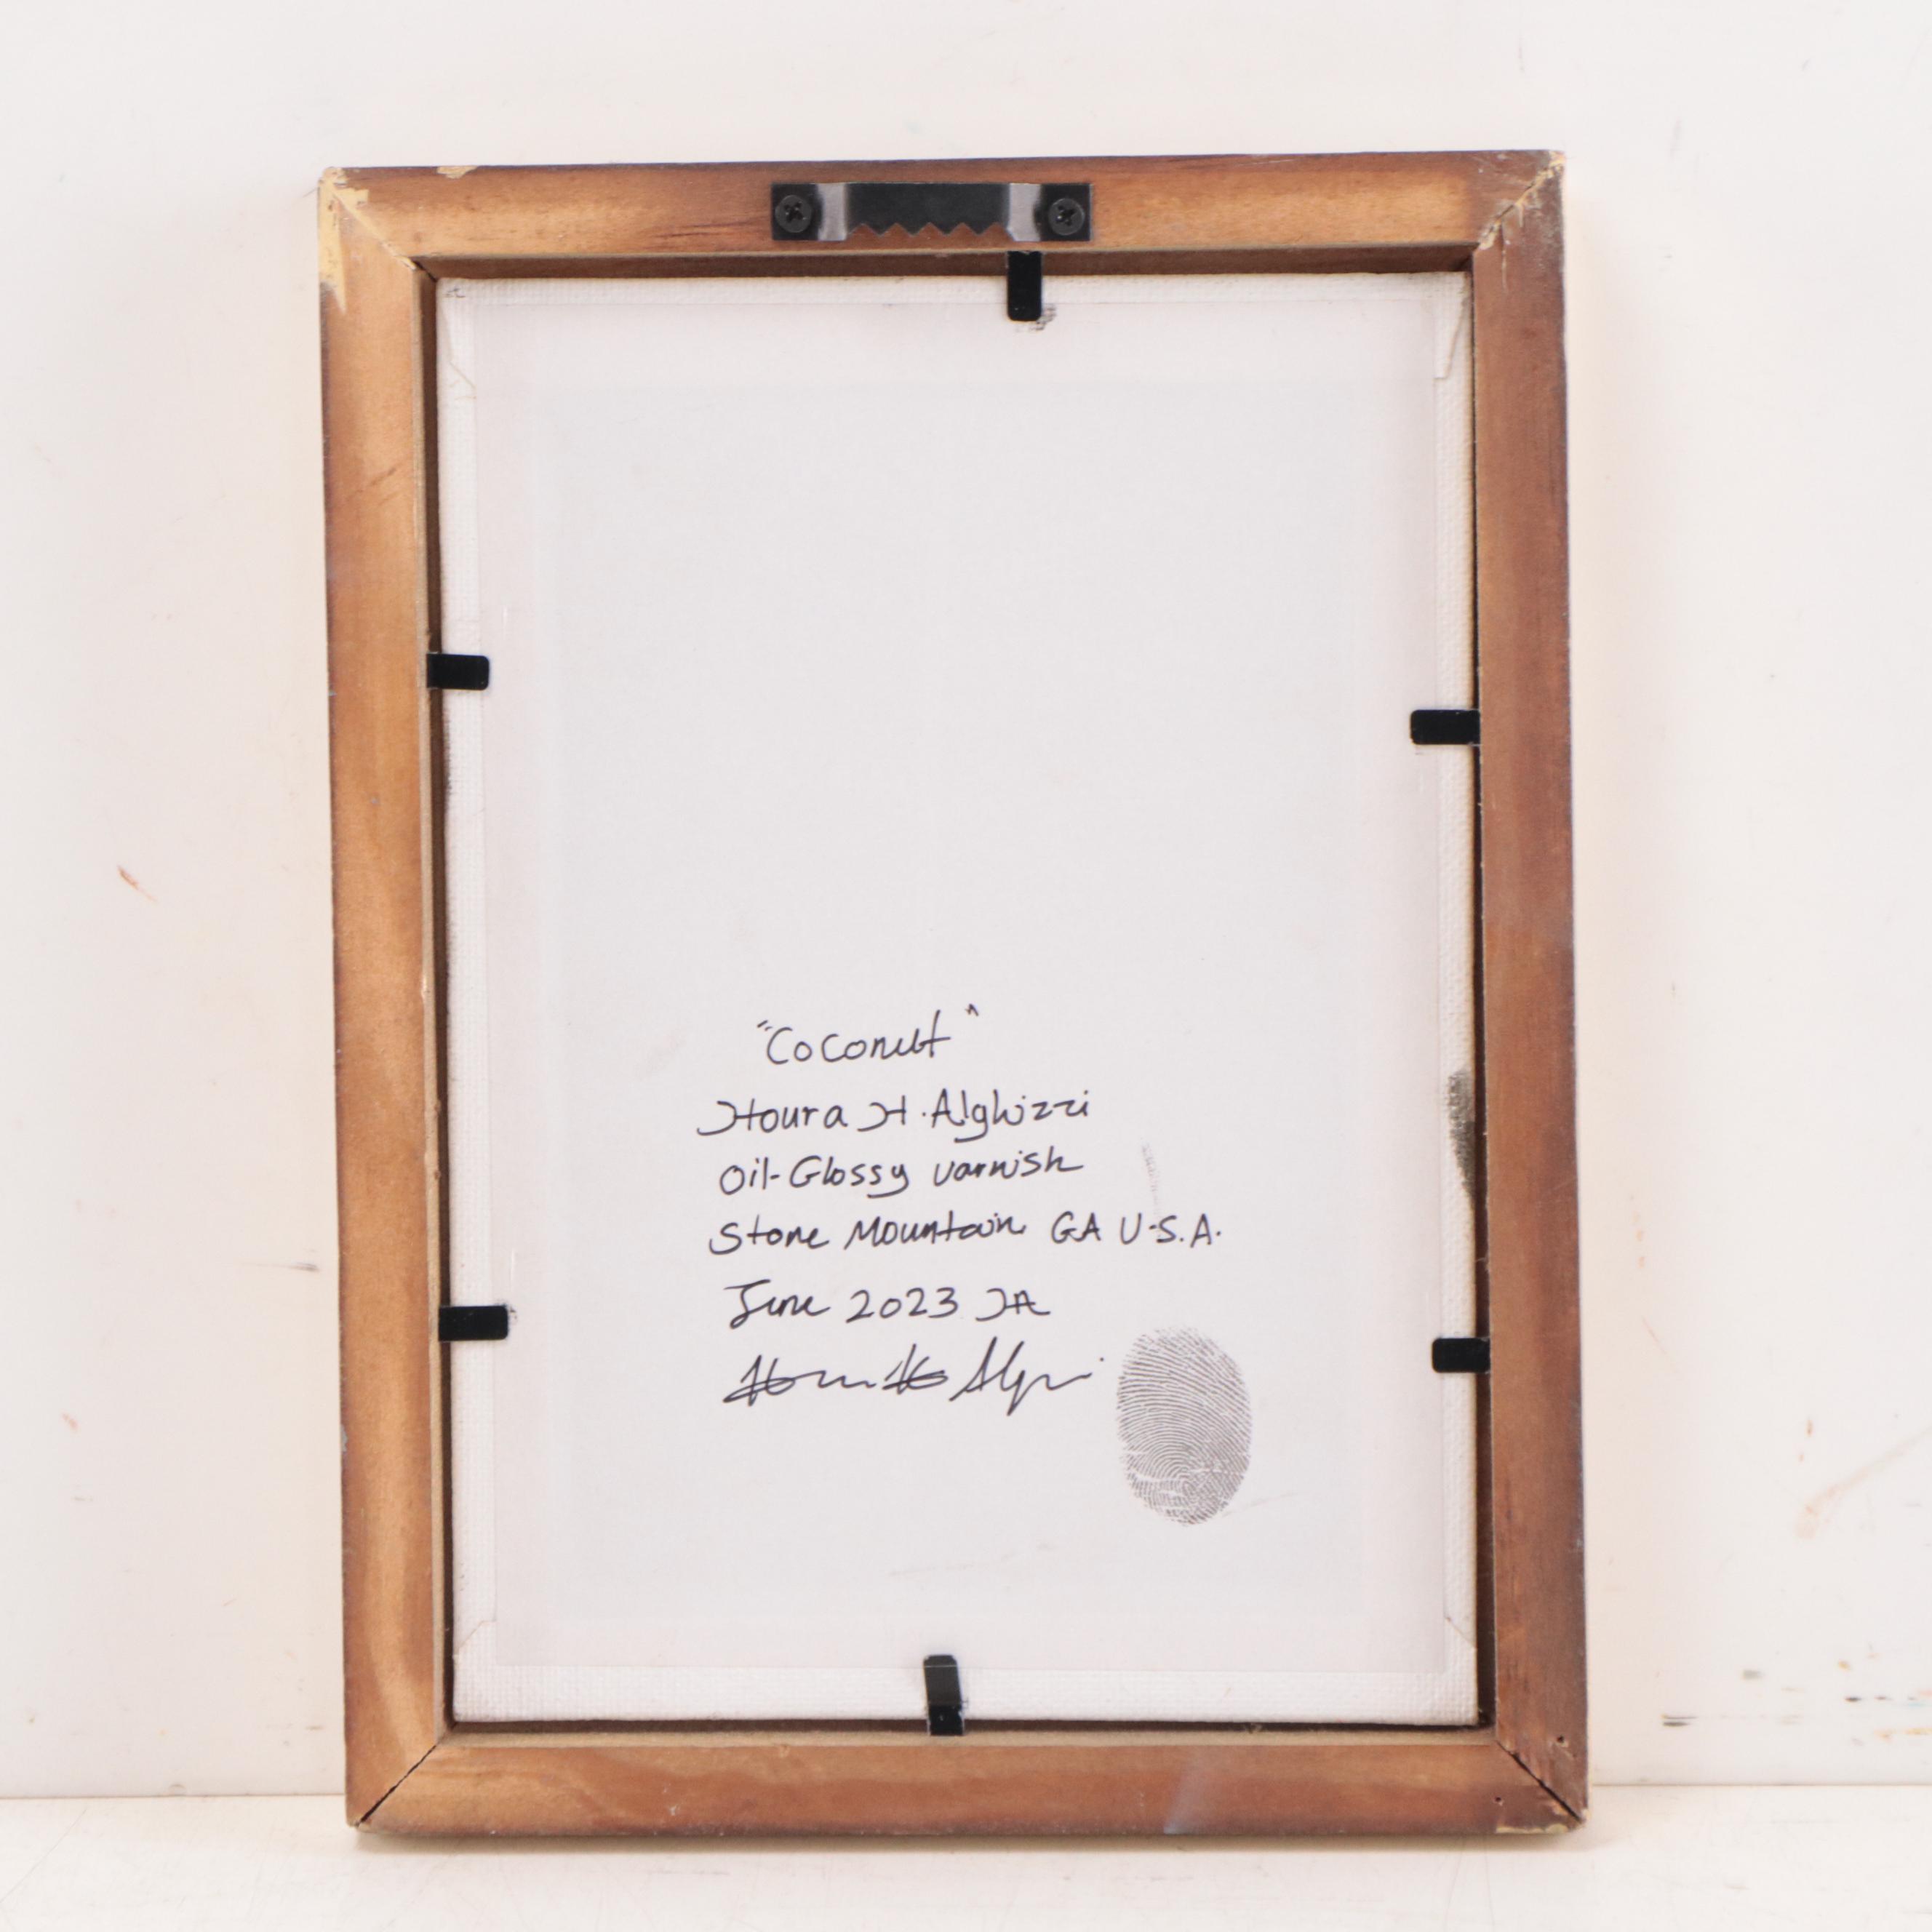 "Coconut"
Houra H. Alghizzi
Oil-Glossy varnish
Stone Mountain GA U.S.A.
June 2023 HA